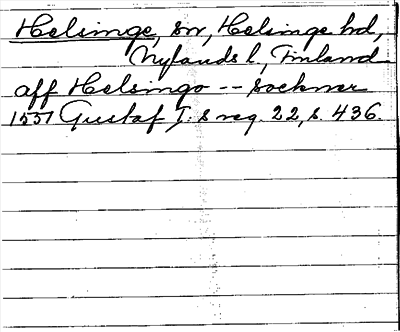 Helsinge, sn, Helsinge hd,
Nylands l, Finland
aff Helsingo -- sochner
1551 Gustaf I:s reg. 22, s. 436.